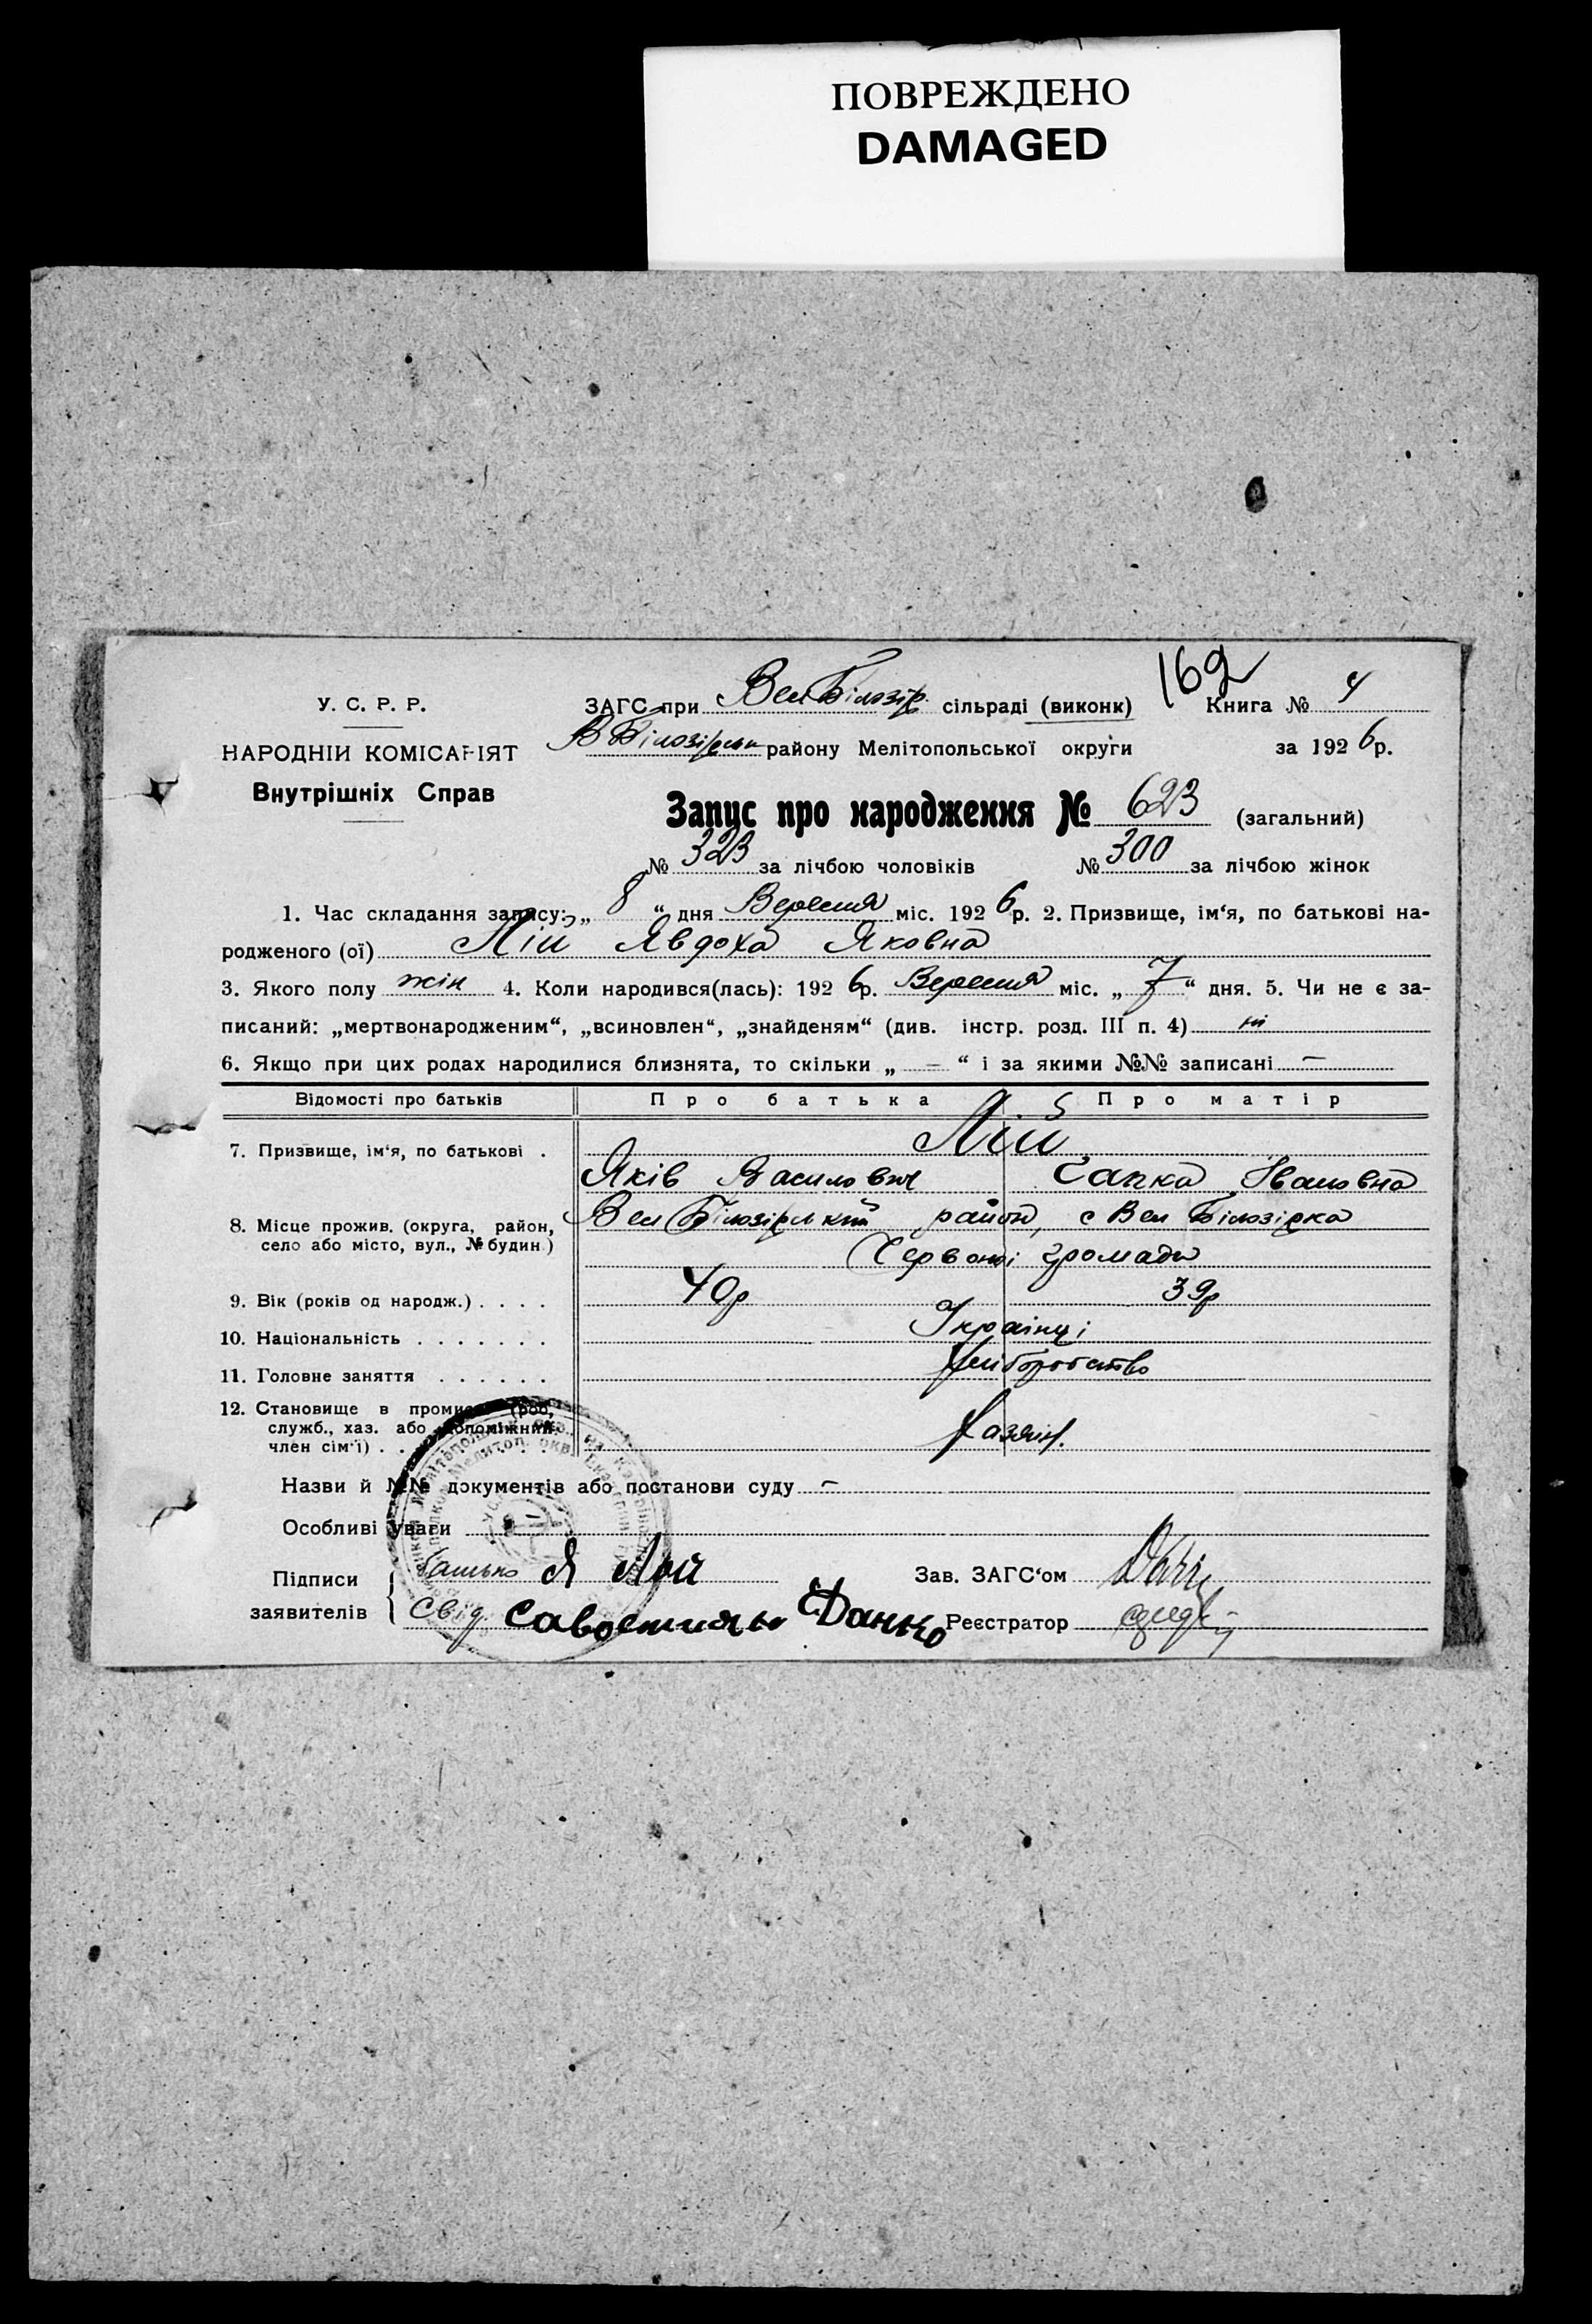 ПОВРЕЖДЕНО
DAMAGED
162
У. С. Р. Р.
НАРОДНІЙ КОМІСАРІЯТ
Внутрішніх Справ
ЗАГС при Вел Білозір. сільраді (виконк) Книга № 4
В Білозірськ району Мелітопольської округи за 1926р.
Запис про народження № 623 (загальний)
№ 323 за лічбою чоловіків № 300 за лічбою жінок
1. Час складання запису: „ 8 “ дня Вересня міс. 1926р. 2. Призвище, ім‘я, по батькові на-
родженого (ої) Лій Явдоха Яковна
3. Якого полу жін 4. Коли народився(лась): 1926р. Вересня міс. „ 7 “ дня. 5. Чи не є за-
писаний: „мертвонародженим“, „всиновлен“, „знайденям“ (див. інстр. розд. III п. 4) ні
6. Якщо при цих родах народилися близнята, то скільки „ — “ і за якими №№ записані —
Відомості про батьків Про батька Про матір
7. Призвище, ім‘я, по батькові . Лій
Яків Василович Гапка Івановна
8. Місце прожив. (округа, район, село або місто, вул., № будин.) Вел Білозірський район, с Вел Білозірка
Червоної громади
9. Вік (років од народж.) . . . . 40р 39р
10. Національність . . . . . . . Українці
11. Головне заняття . . . . . . Хліборобство
12. Становище в промис. (роб,
служб., хаз. або допоміжний,
член сім‘ї) . . Хазяїн.
Назви й №№ документів або постанови суду —
Особливі уваги
Підписи заявителів { батько Я Лой Зав. ЗАГС‘ом
Свід. Данко Реєстратор